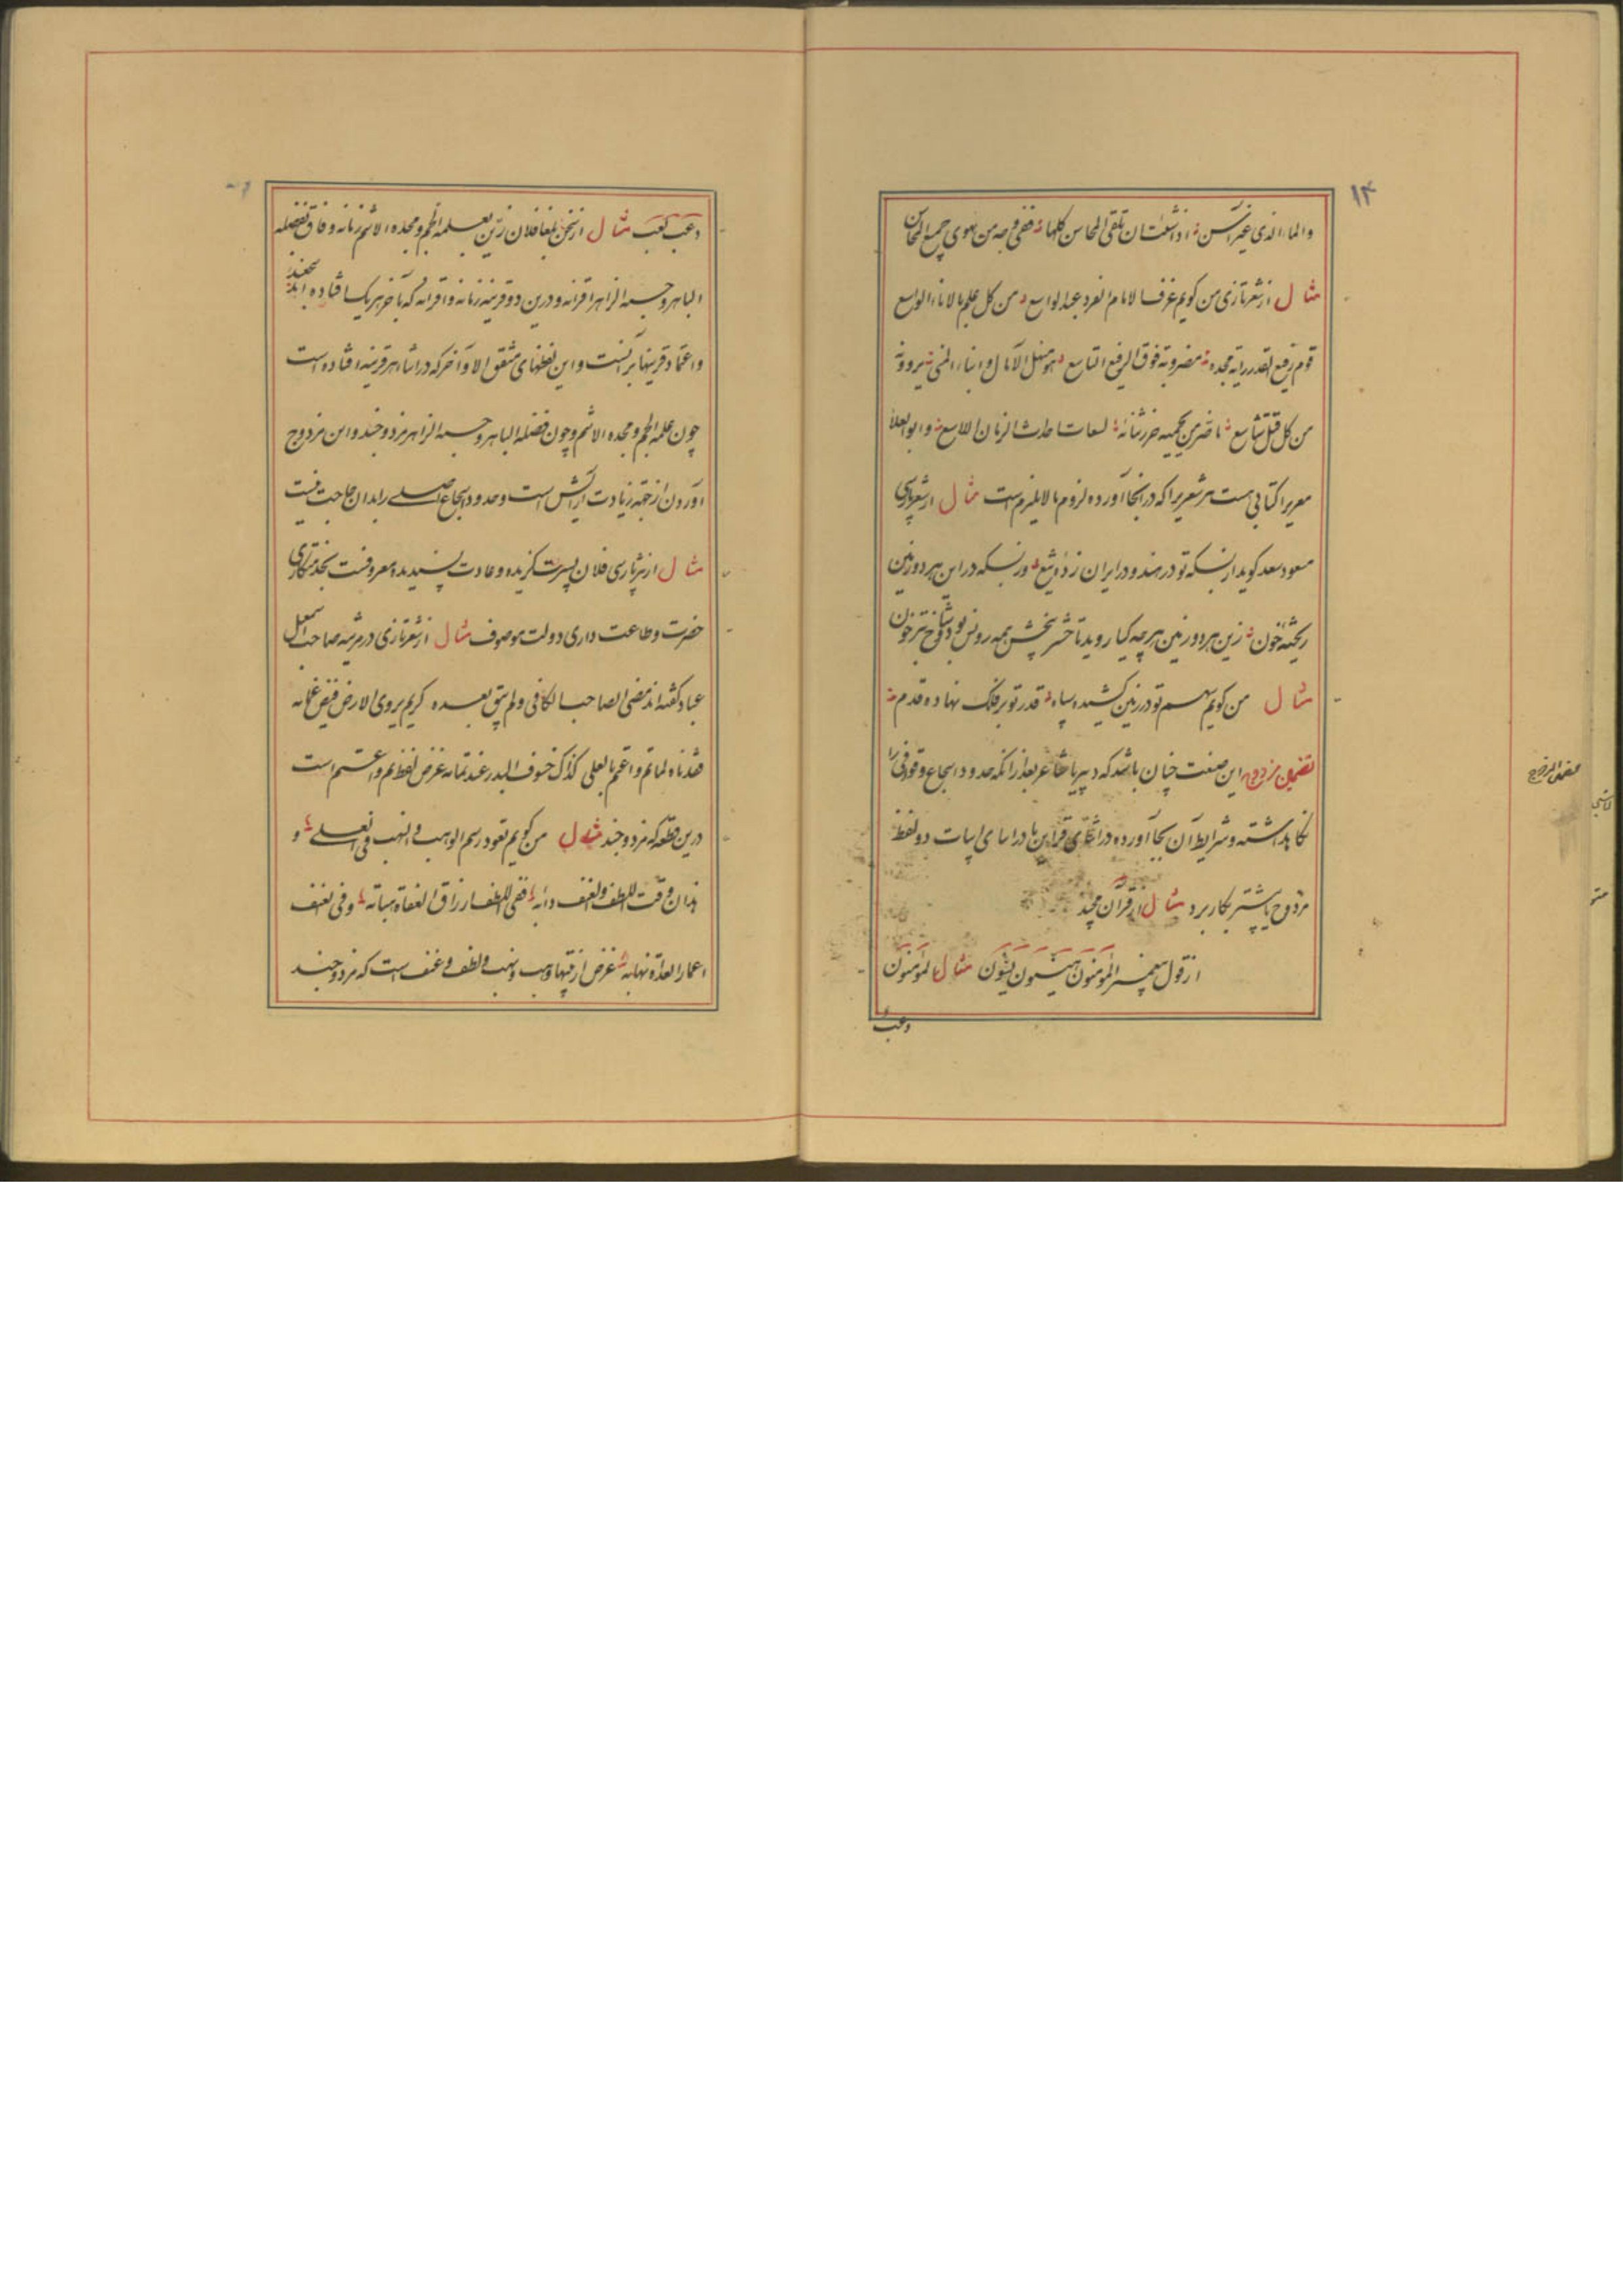 ۱۴
والماء الذی غیر آسن اذا شئت ان تلقی المحاسن کلها ففی وجه من تهوی جمیع المحاسن
مثال از شعر تازی من گویم غرف الامام الفرد عبد الواسع من کل علم بالاناء الواسع
قوم رفیع القدر رایة مجده مضروبة فوق الرفیع التاسع هو منهل الآمال وابناء المنی یردونه
من کل شاسع ما ضر من یحمیه لسعات حادث الزمان اللاسع وابو العلاء
معری را کتابی است هر شعری را که در آنجا آورده لزوم ما لا یلزم است مثال از شعر پارسی
مسعود سعد گوید از بسکه تو در هند و در ایران زده تیغ وز بسکه در این هر دو زمین
ریخته خون زین هر دو زمین هر چه گیا روید تا حشر بیخش همه روئین بود و شاخ طبرخون
مثال من گویم سهم تو در زمین کشیده سپاه قدر تو بر فلک نهاده قدم
تضمین مزدوج این صنعت چنان باشد که دبیر یا شاعر بعد از آنکه حدود اسجاع و قوافی را
نگاه داشته و شرایط آن بجا آورده در اثنای قراین یا در اثنای ابیات دو لفظ
مزدوج یا بیشتر بکار برد مثال از قرآن مجید
از قول پیغمبر المؤمنون هینون لینون مثال المؤمنون
دعب
دعب لعب مثال از سخن بلغا فلان زین بعلمه الجم ومجده الاشم زمانه وفاق بفضله
الباهر وحسبه الزاهر اقرانه ودرین دو قرینه زمانه واقرانه که بآخر هر یک افتاده اند سجعند
واعتماد قرینها بر آنست واین لفظهای متفق الاواخر که در اثناء هر قرینه افتاده است
چون علمه الجم ومجده الاشم وچون فضله الباهر وحسبه الزاهر مزدوجند واین مزدوج
آوردن از جهة زیادت آرایش است وحدود اسجاع اصلی را بدان حاجت نیست
مثال از نثر پارسی فلان بسیرت گزیده وعادت پسندیده معروفست بخدمتکاری
حضرت وطاعت داری دولت موصوف مثال از شعر تازی در مرثیه صاحب اسمعیل
عباد گفته اند مضی الصاحب الکافی ولم یبق بعده کریم یروی الارض فیض غمامه
فقدناه لما تم واعتم بالعلی کذاک خسوف البدر عند تمامه غرض لفظ تم واعتم است
درین قطعه که مزدوجند مثال من گویم تعود رسم الوهب والنهب فی العلی و
هذان وقت اللطف والعنف دأبه ففی اللطف ارزاق العفاة هباته وفی العنف
اعمار العداة نهابه غرض از بیتها وهب ونهب ولطف وعنف است که مزدوجند